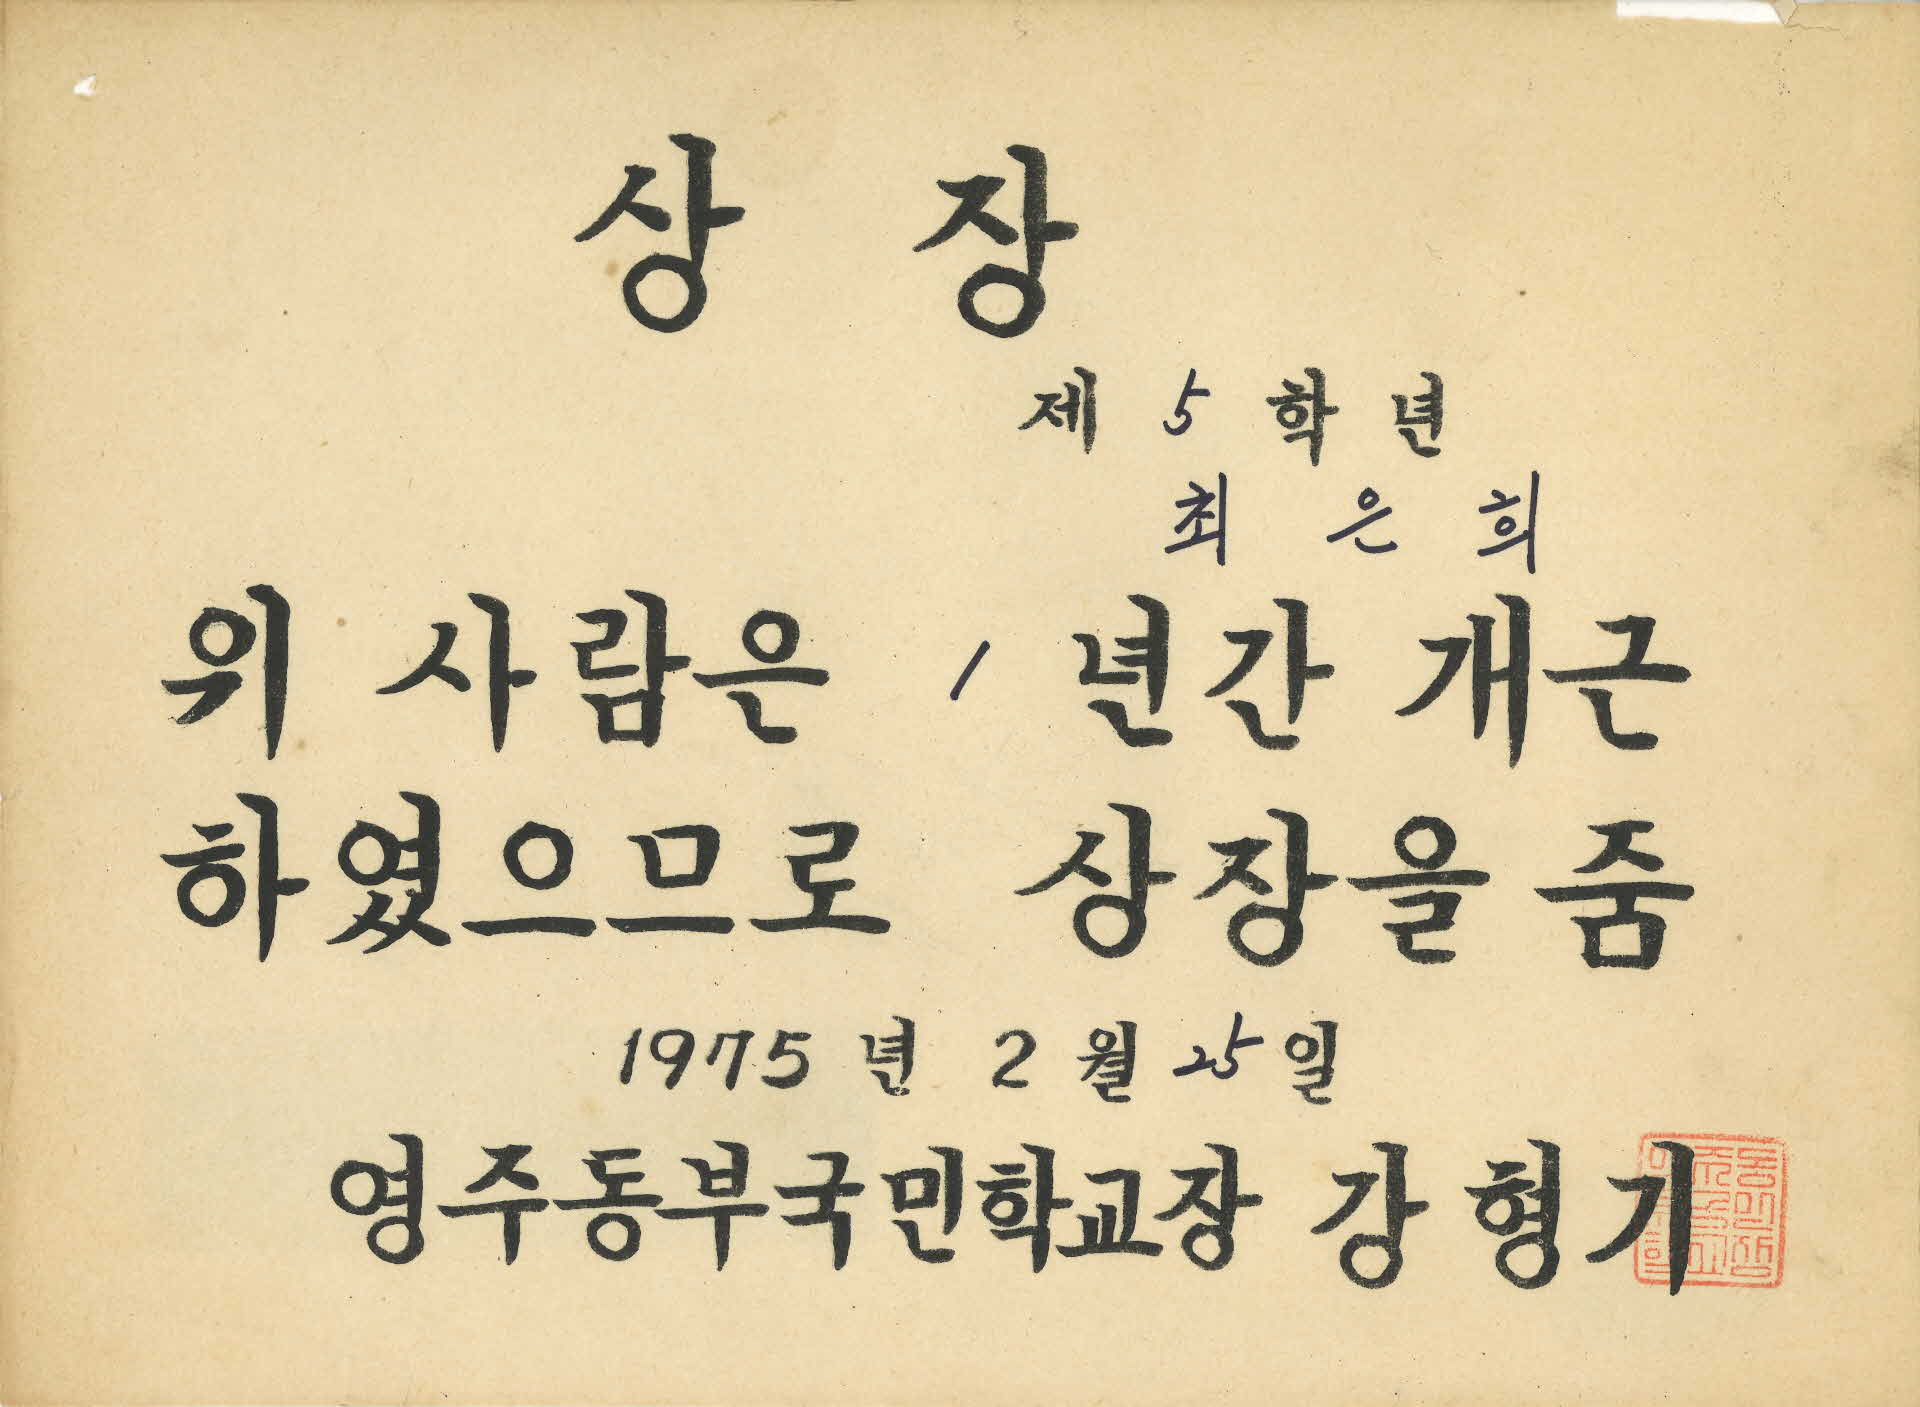 상 장
제 5 학 년
최 은 희
위 사람은 1 년간 개근
하였으므로 상장을 줌
1975 년 2 월 25 일
영주동부국민학교장 강 형 기